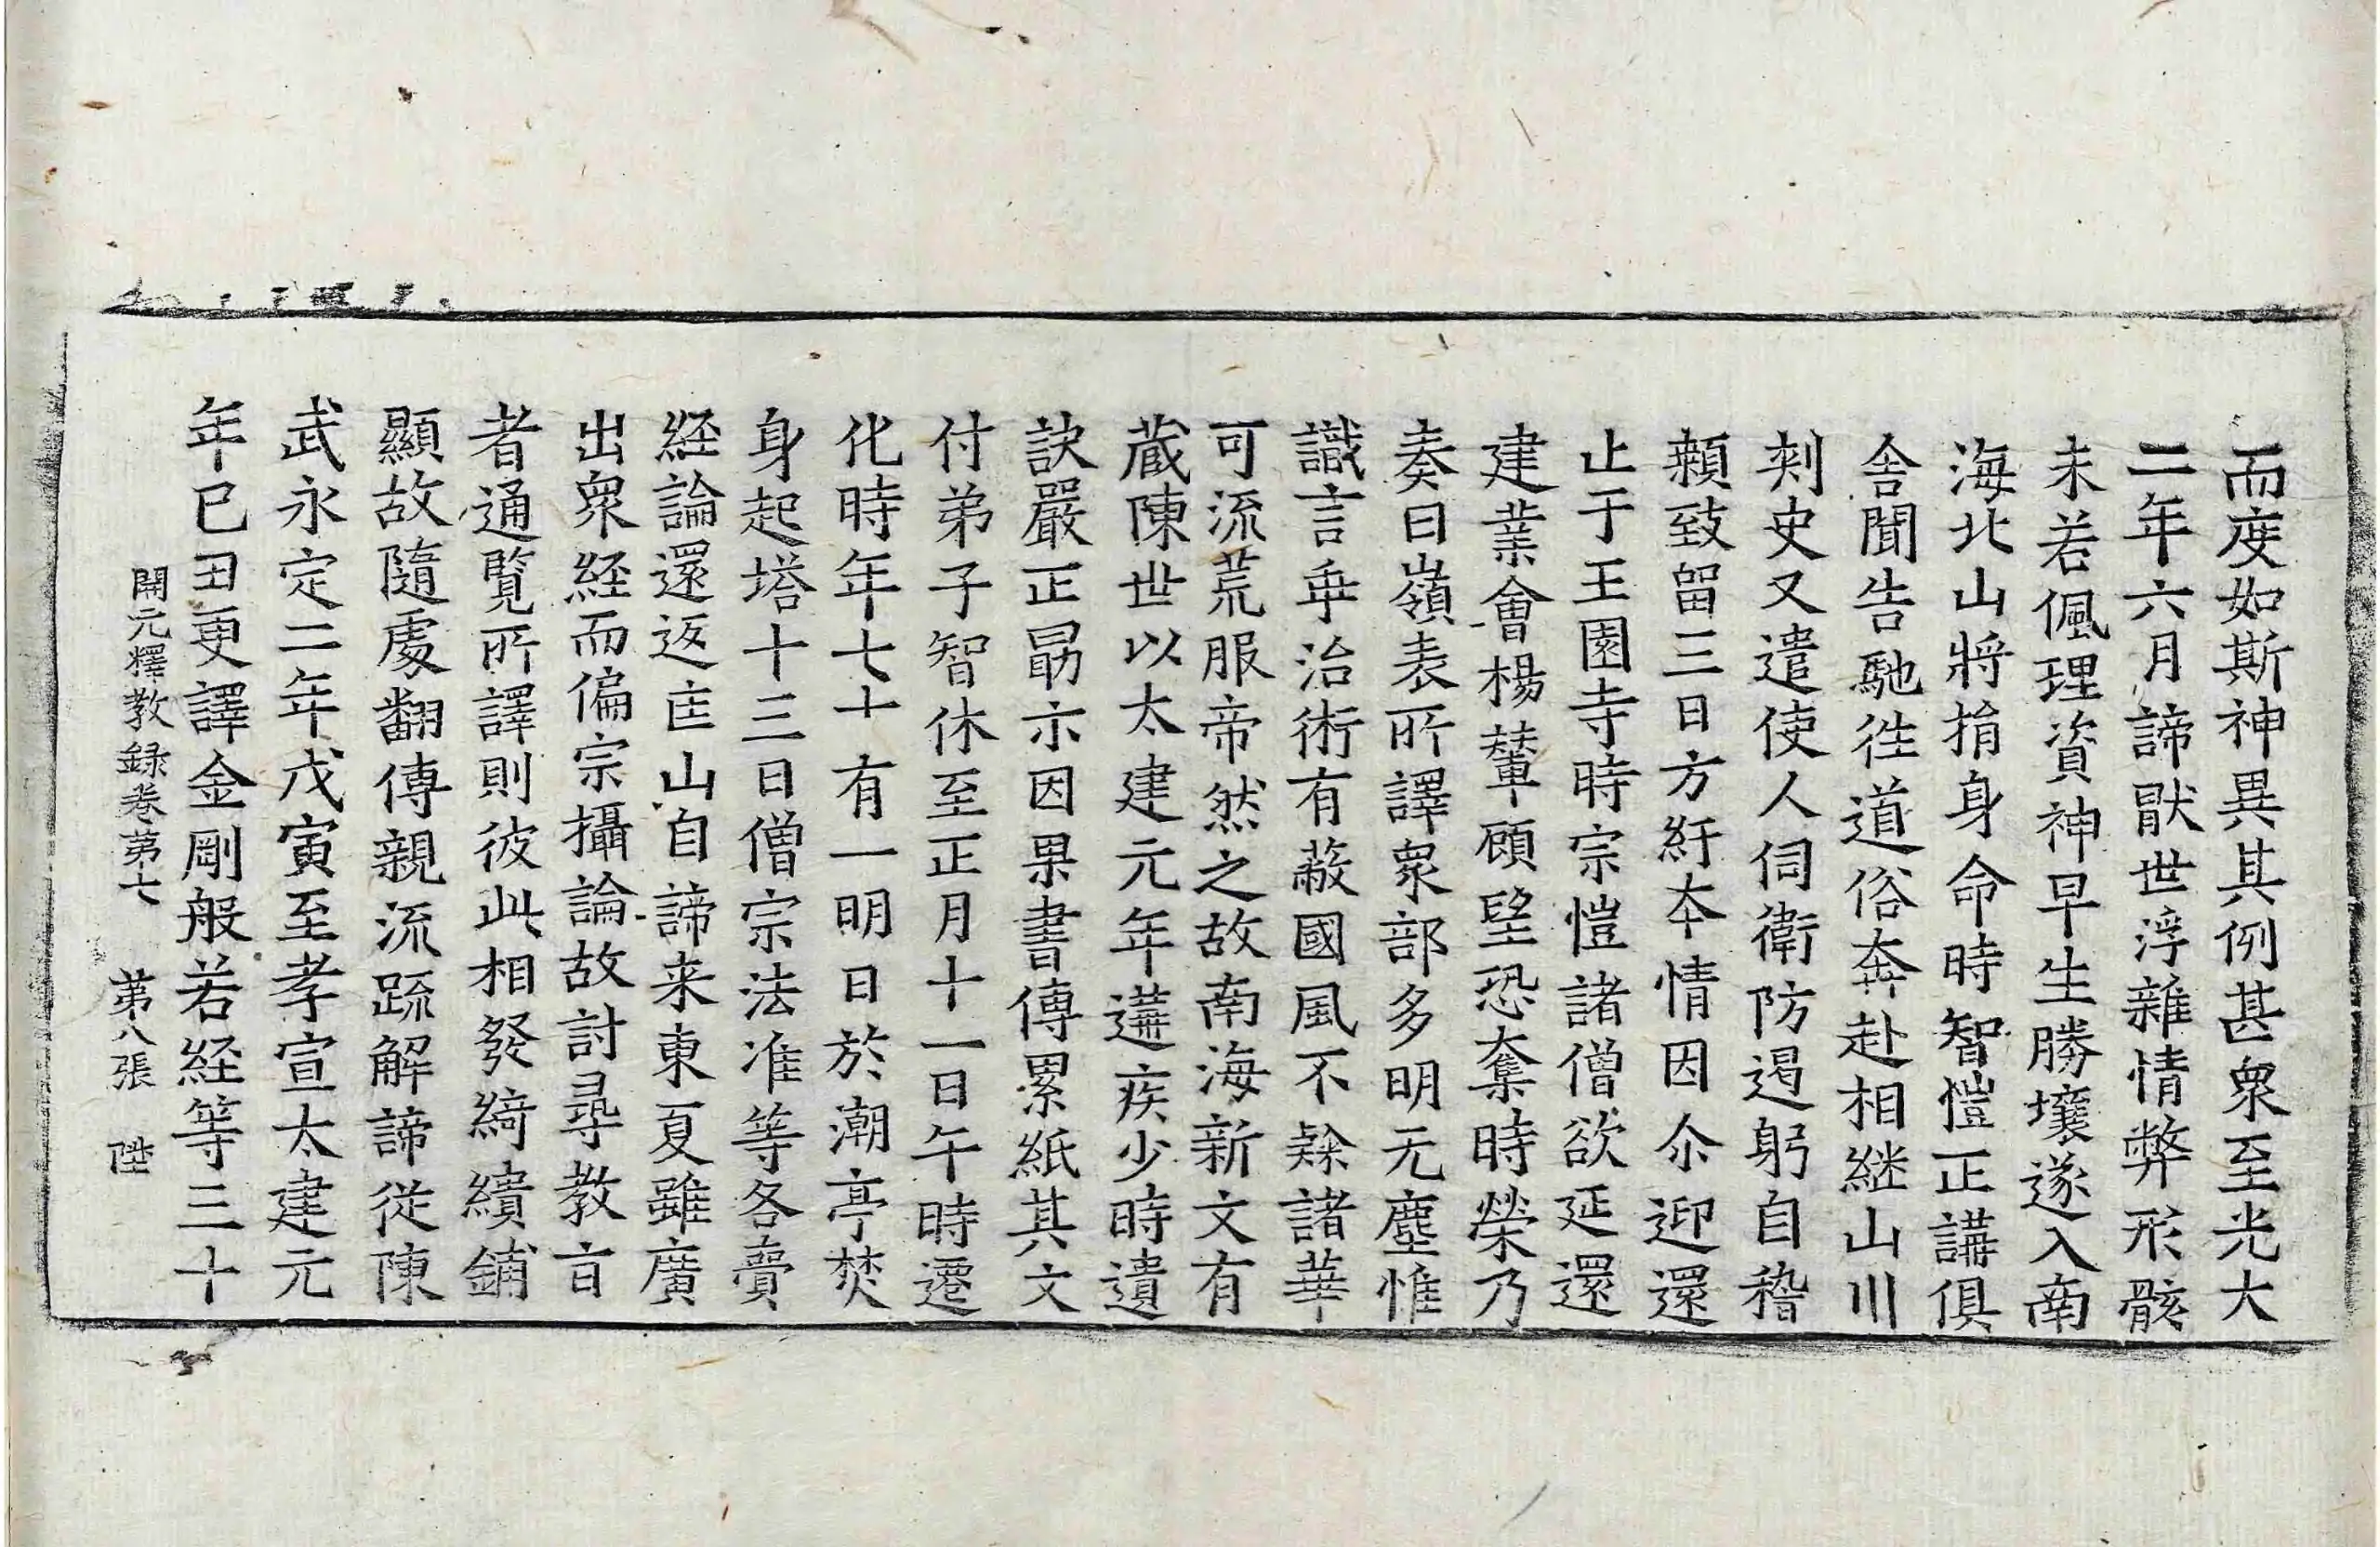 而度如斯神異其例甚衆至光大
二年六月諦猒世浮雜情弊形骸
未若佩理資神早生勝壤遂入南
海北山將捐身命時智愷正講俱
舍聞告馳徃道俗奔赴相継山川
刾史又遣使人伺衛防遏躬自稽
顙致留三日方紆夲情因尒迎還
止于王園寺時宗愷諸僧欲延還
建業會楊輦顧望恐奪時榮乃
奏曰嶺表所譯衆部多明无塵惟
識言乖治術有蔽國風不隸諸華
可流荒服帝然之故南海新文有
蔵陳世以太建元年遘疾少時遺
訣嚴正勗示因果書傳累紙其文
付弟子智休至正月十一日午時遷
化時年七十有一明日於潮亭焚
身起塔十三日僧宗法准等各賷
経論還返匡山自諦来東夏雖廣
出衆経而偏宗攝論故討尋教旨
者通覧所譯則彼此相發綺繢鋪
顯故隨處翻傳親流踈解諦從陳
武永定二年戊寅至孝宣太建元
年已丑更譯金剛般若経等三十
開元釋教録卷苐七 苐八張 陞